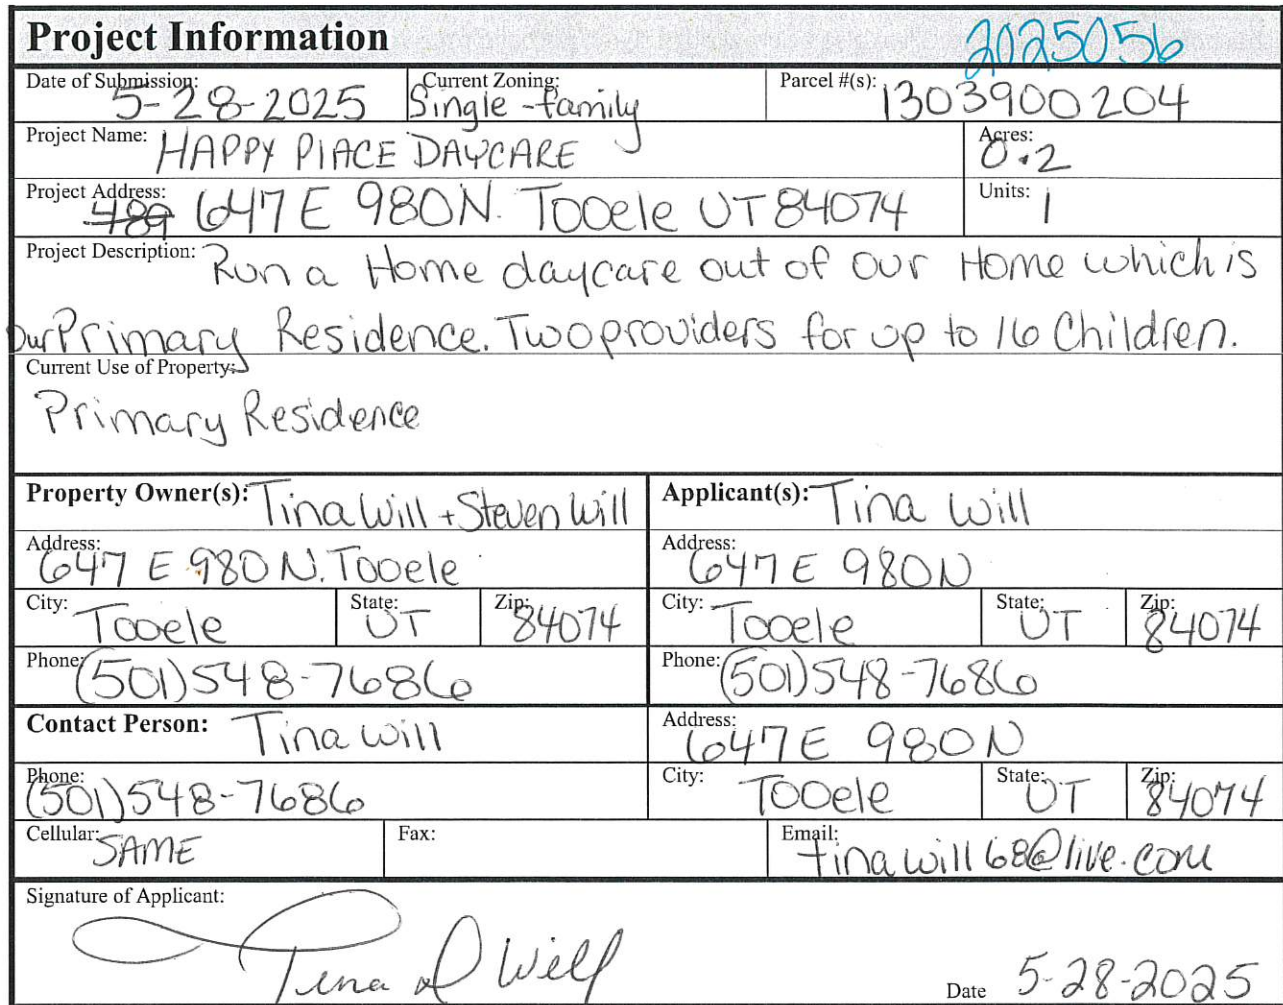 Project Information 2025056
Date of Submission: 5-28-2025 Current Zoning: Single-family Parcel #(s): 1303900204
Project Name: HAPPY PlACE DAYCARE Acres: 0.2
Project Address: 489 647 E 980 N. Tooele UT 84074 Units: 1
Project Description: Run a Home daycare out of our Home which is
our Primary Residence. Two providers for up to 16 Children.
Current Use of Property:
Primary Residence
Property Owner(s): Tina Will + Steven Will Applicant(s): Tina Will
Address: 647 E 980 N. Tooele Address: 647 E 980 N
City: Tooele State: UT Zip: 84074 City: Tooele State: UT Zip: 84074
Phone: (501) 548-7686 Phone: (501) 548-7686
Contact Person: Tina Will Address: 647 E 980 N
Phone: (501) 548-7686 City: Tooele State: UT Zip: 84074
Cellular: SAME Fax: Email: tinawill68@live.com
Signature of Applicant:
Tina D Will Date 5-28-2025